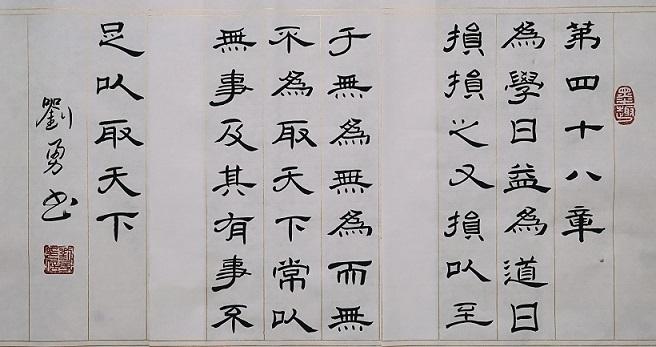 墨趣
第四十八章
為學日益為道日
損損之又損以至
于無為無為而無
不為取天下常以
無事及其有事不
足以取天下
劉勇书